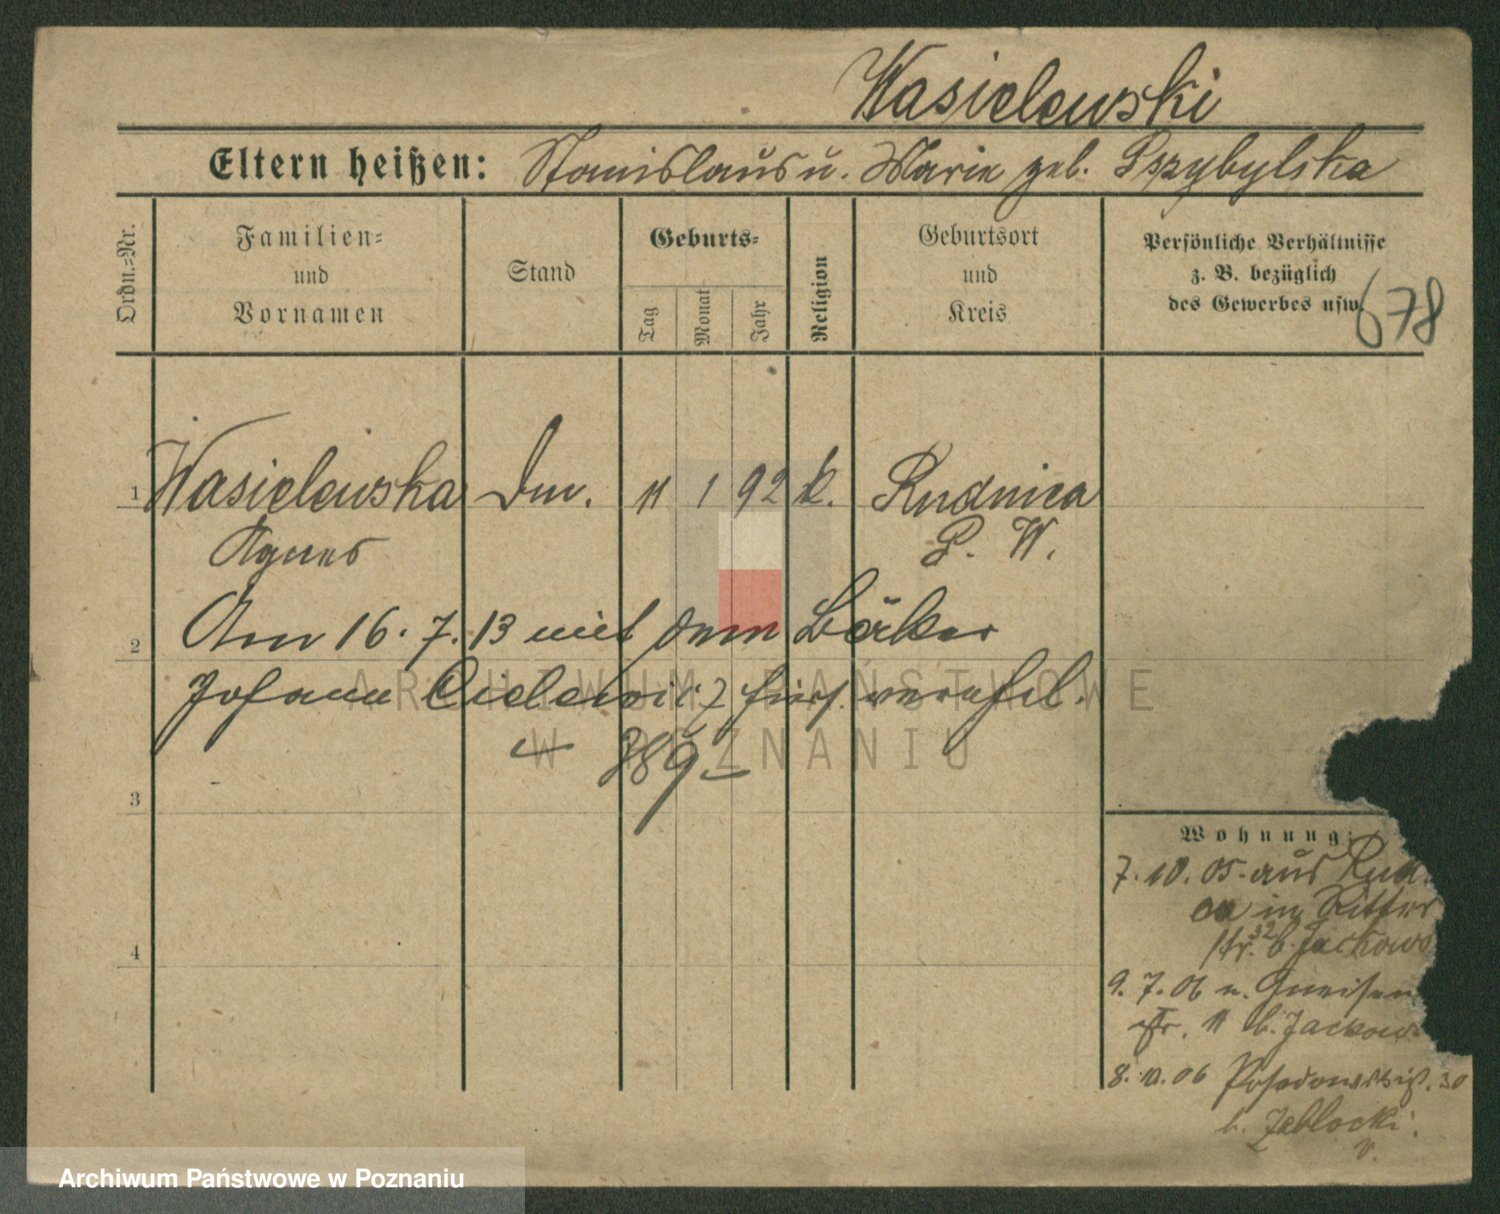 Wasielewski
Eltern heißen: Stanislaus u. Marie geb. Przybylska
Ordn.-Nr.
Familien-
und
Vornamen
Stand
Geburts-
Tag
Monat
Jahr
Religion
Geburtsort
und
Kreis
Persönliche Verhältnisse
z. B. bezüglich
des Gewerbes usw.
678
1 Wasielewska Dm. 11 1 92 k. Rudnica
Agnes P. W.
2 Am 16. 7. 13 mit dem Bäcker
Johann hier verehel.
389
3
4
Wohnung:
7. 10. 05 aus Rud
in Ritter
str. 32 b. Jackows
9. 7. 06 n. Gneisen
str. 11 b. Jackows
8. 10. 06 30
b. Zablocki.
v.
ARCHIWUM PAŃSTWOWE
W POZNANIU
Archiwum Państwowe w Poznaniu